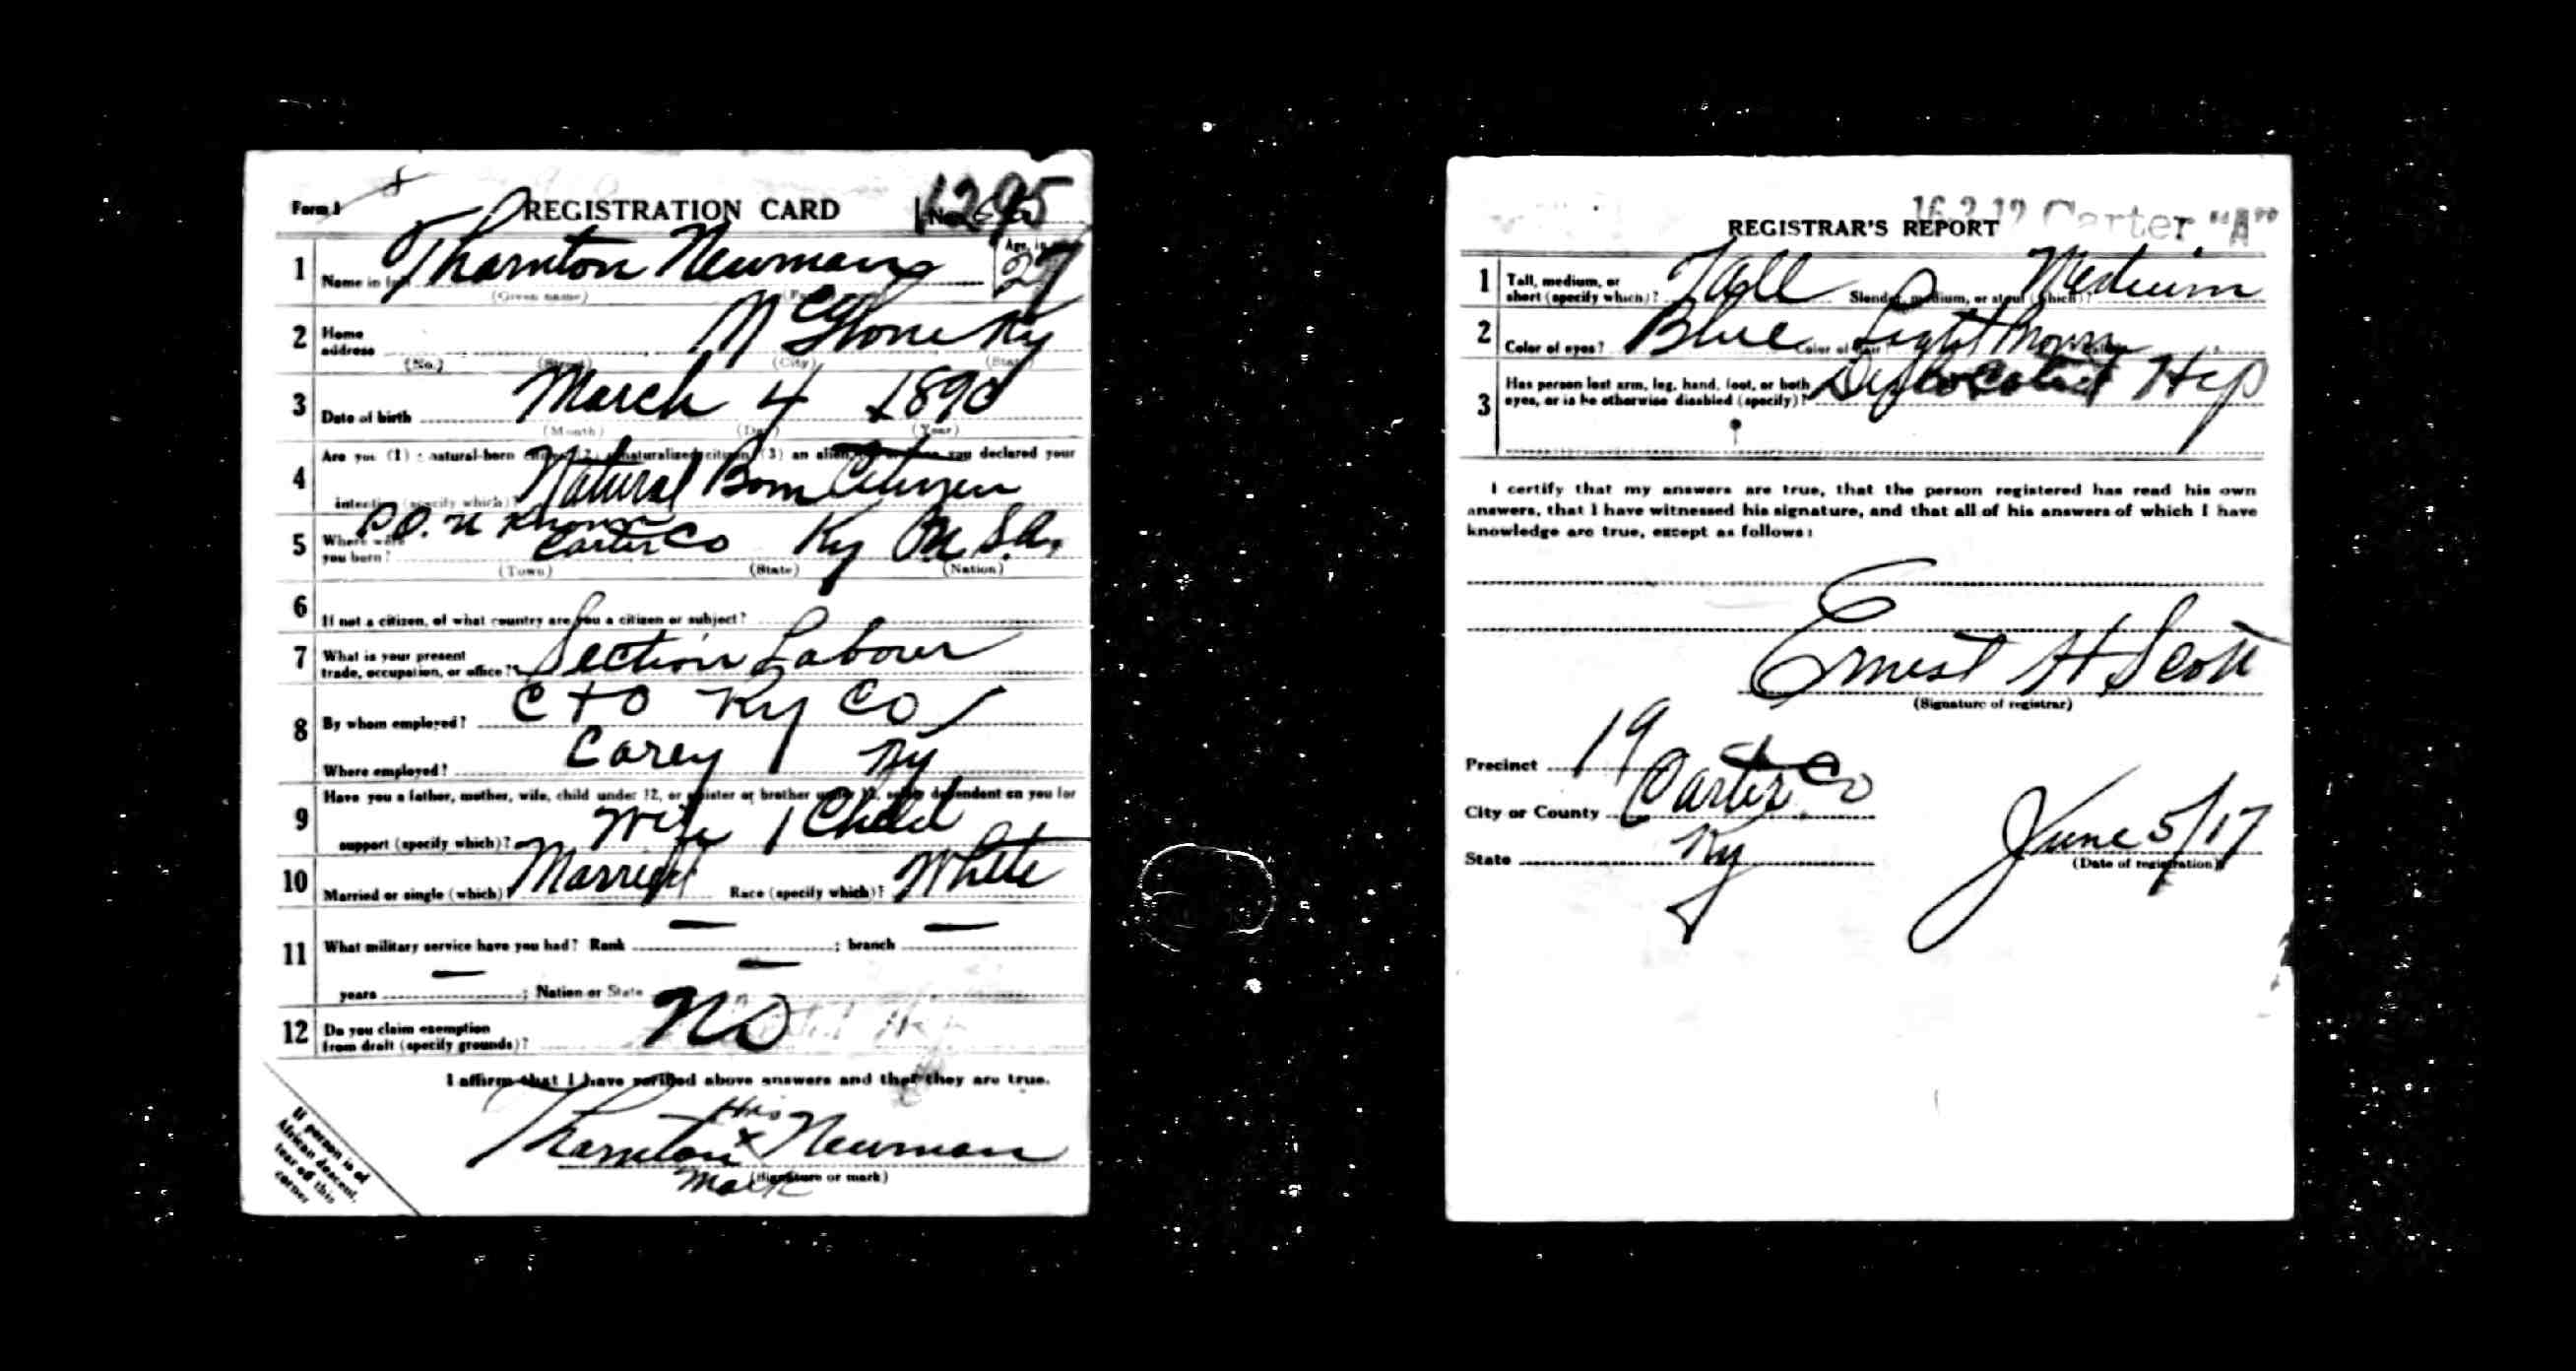 Form 1 REGISTRATION CARD No. 1295
1 Name in full Tharnton Newman Age, in yrs. 27
(Given name)
2 Home address McGlone Ky
(No.) (Street) (City) (State)
3 Date of birth March 4 1890
(Month) (Day) (Year)
4 Are you (1) a natural-born citizen, (2) a naturalized citizen, (3) an alien, you declared your
intention (specify which)? Natural Born Citizen
P.O. Unknown
5 Where were you born? Carter Co Ky U.S.A.
(Town) (State) (Nation)
6 If not a citizen, of what country are you a citizen or subject?
7 What is your present trade, occupation, or office? Section Labour
8 By whom employed? C + O Ry Co
Where employed? Corey Ky
9 Have you a father, mother, wife, child under 12, or a sister or brother under 12, solely dependent on you for
support (specify which)? Wife 1 Child
10 Married or single (which)? Married Race (specify which)? White
11 What military service have you had? Rank — ; branch —
years — ; Nation or State —
12 Do you claim exemption from draft (specify grounds)? No
I affirm that I have verified above answers and that they are true.
His
Tharnton x Newman
Mark (Signature or mark)
If person is of
African descent,
tear off this
corner
16-2-12 Carter "A"
REGISTRAR'S REPORT
1 Tall, medium, or short (specify which)? Tall Slender, medium, or stout (which)? Medium
2 Color of eyes? Blue Color of hair? Light Brown
3 Has person lost arm, leg, hand, foot, or both eyes, or is he otherwise disabled (specify)? Dislocated Hip
I certify that my answers are true, that the person registered has read his own
answers, that I have witnessed his signature, and that all of his answers of which I have
knowledge are true, except as follows:
Ernest H Scott
(Signature of registrar)
Precinct 19
City or County Carter Co
State Ky
June 5/17
(Date of registration)